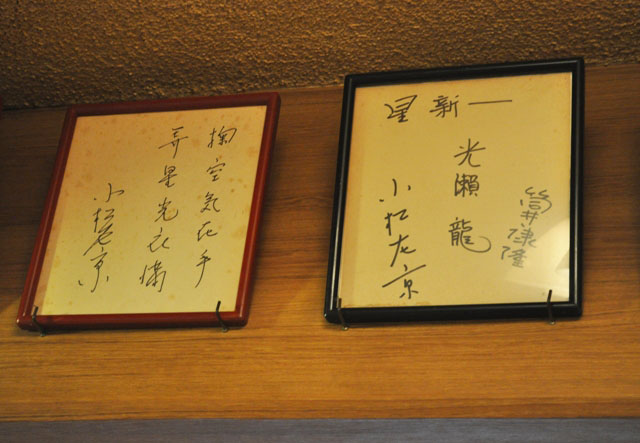 掬空気在手
弄星光衣満
小松左京
星新一
筒井康隆
光瀬龍
小松左京